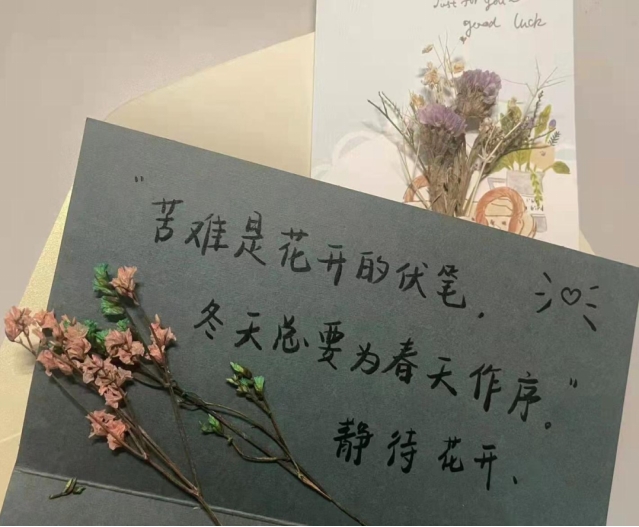 Just for you
good luck
"苦难是花开的伏笔,
冬天总要为春天作序。"
静待花开、